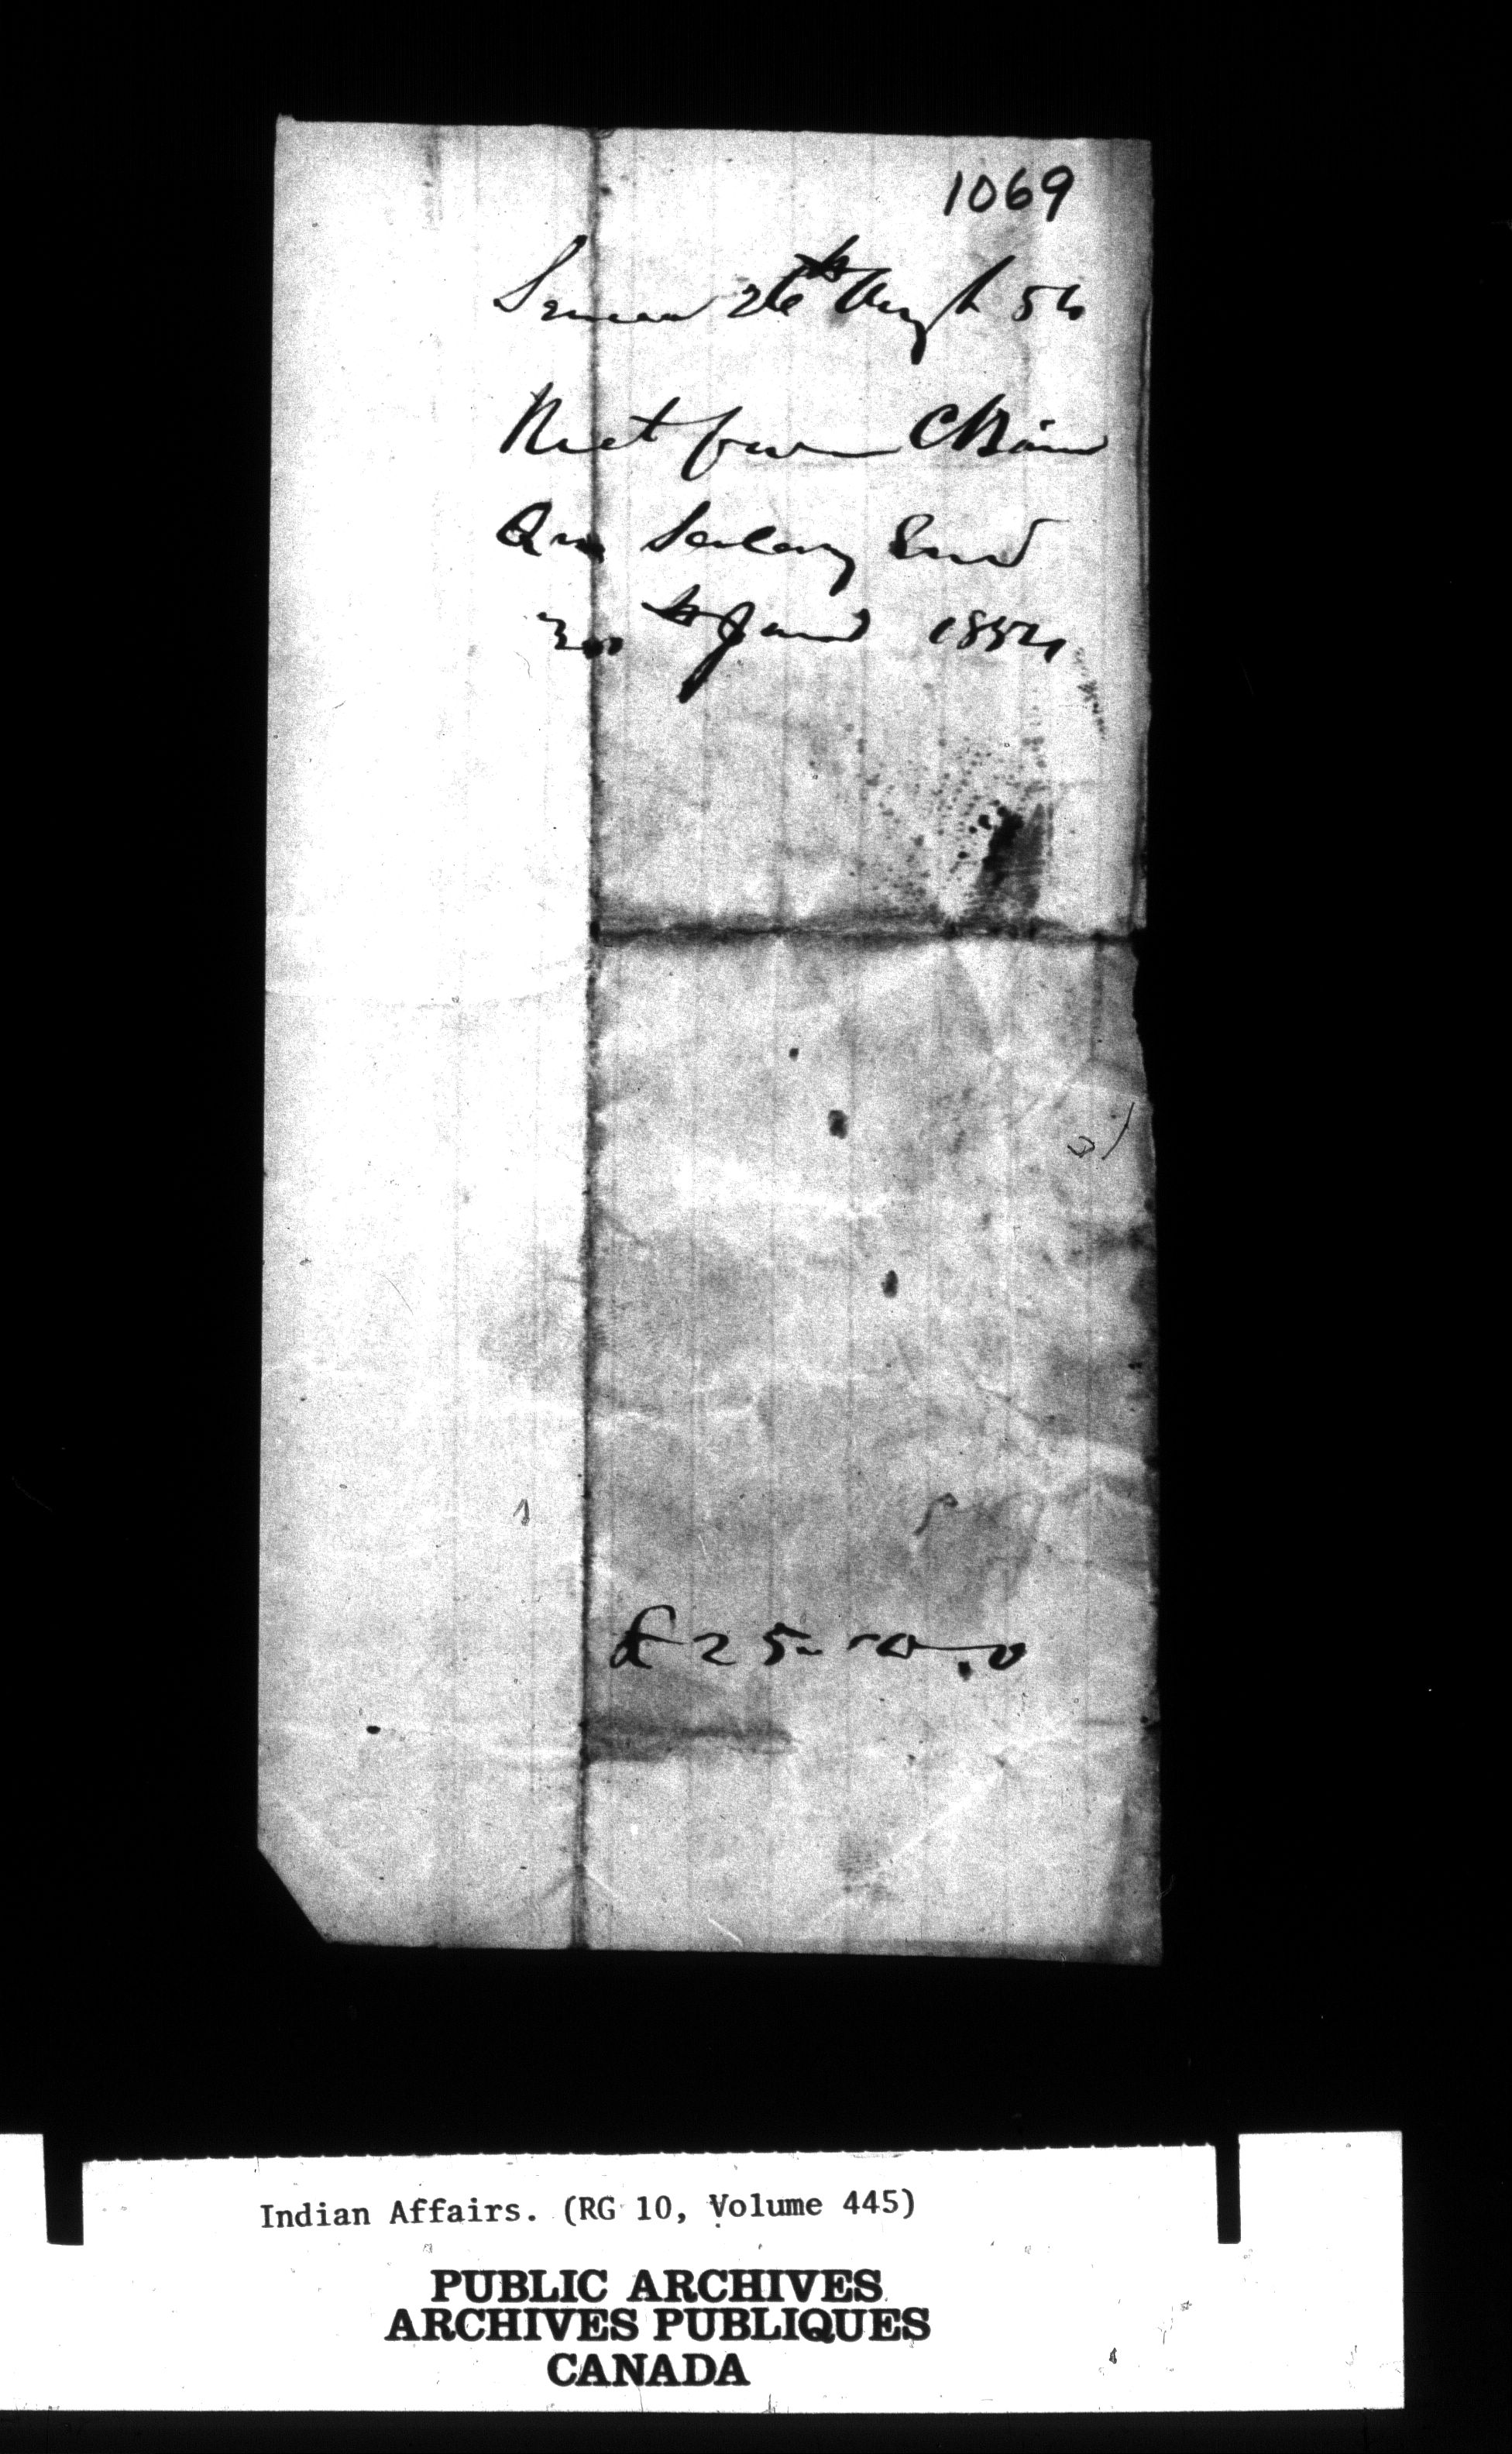 1069
26th Augt 54
from C Bain
Qr Salary End
30th June 1854
£25-0-0
Indian Affairs. (RG 10, Volume 445)
PUBLIC ARCHIVES
ARCHIVES PUBLIQUES
CANADA